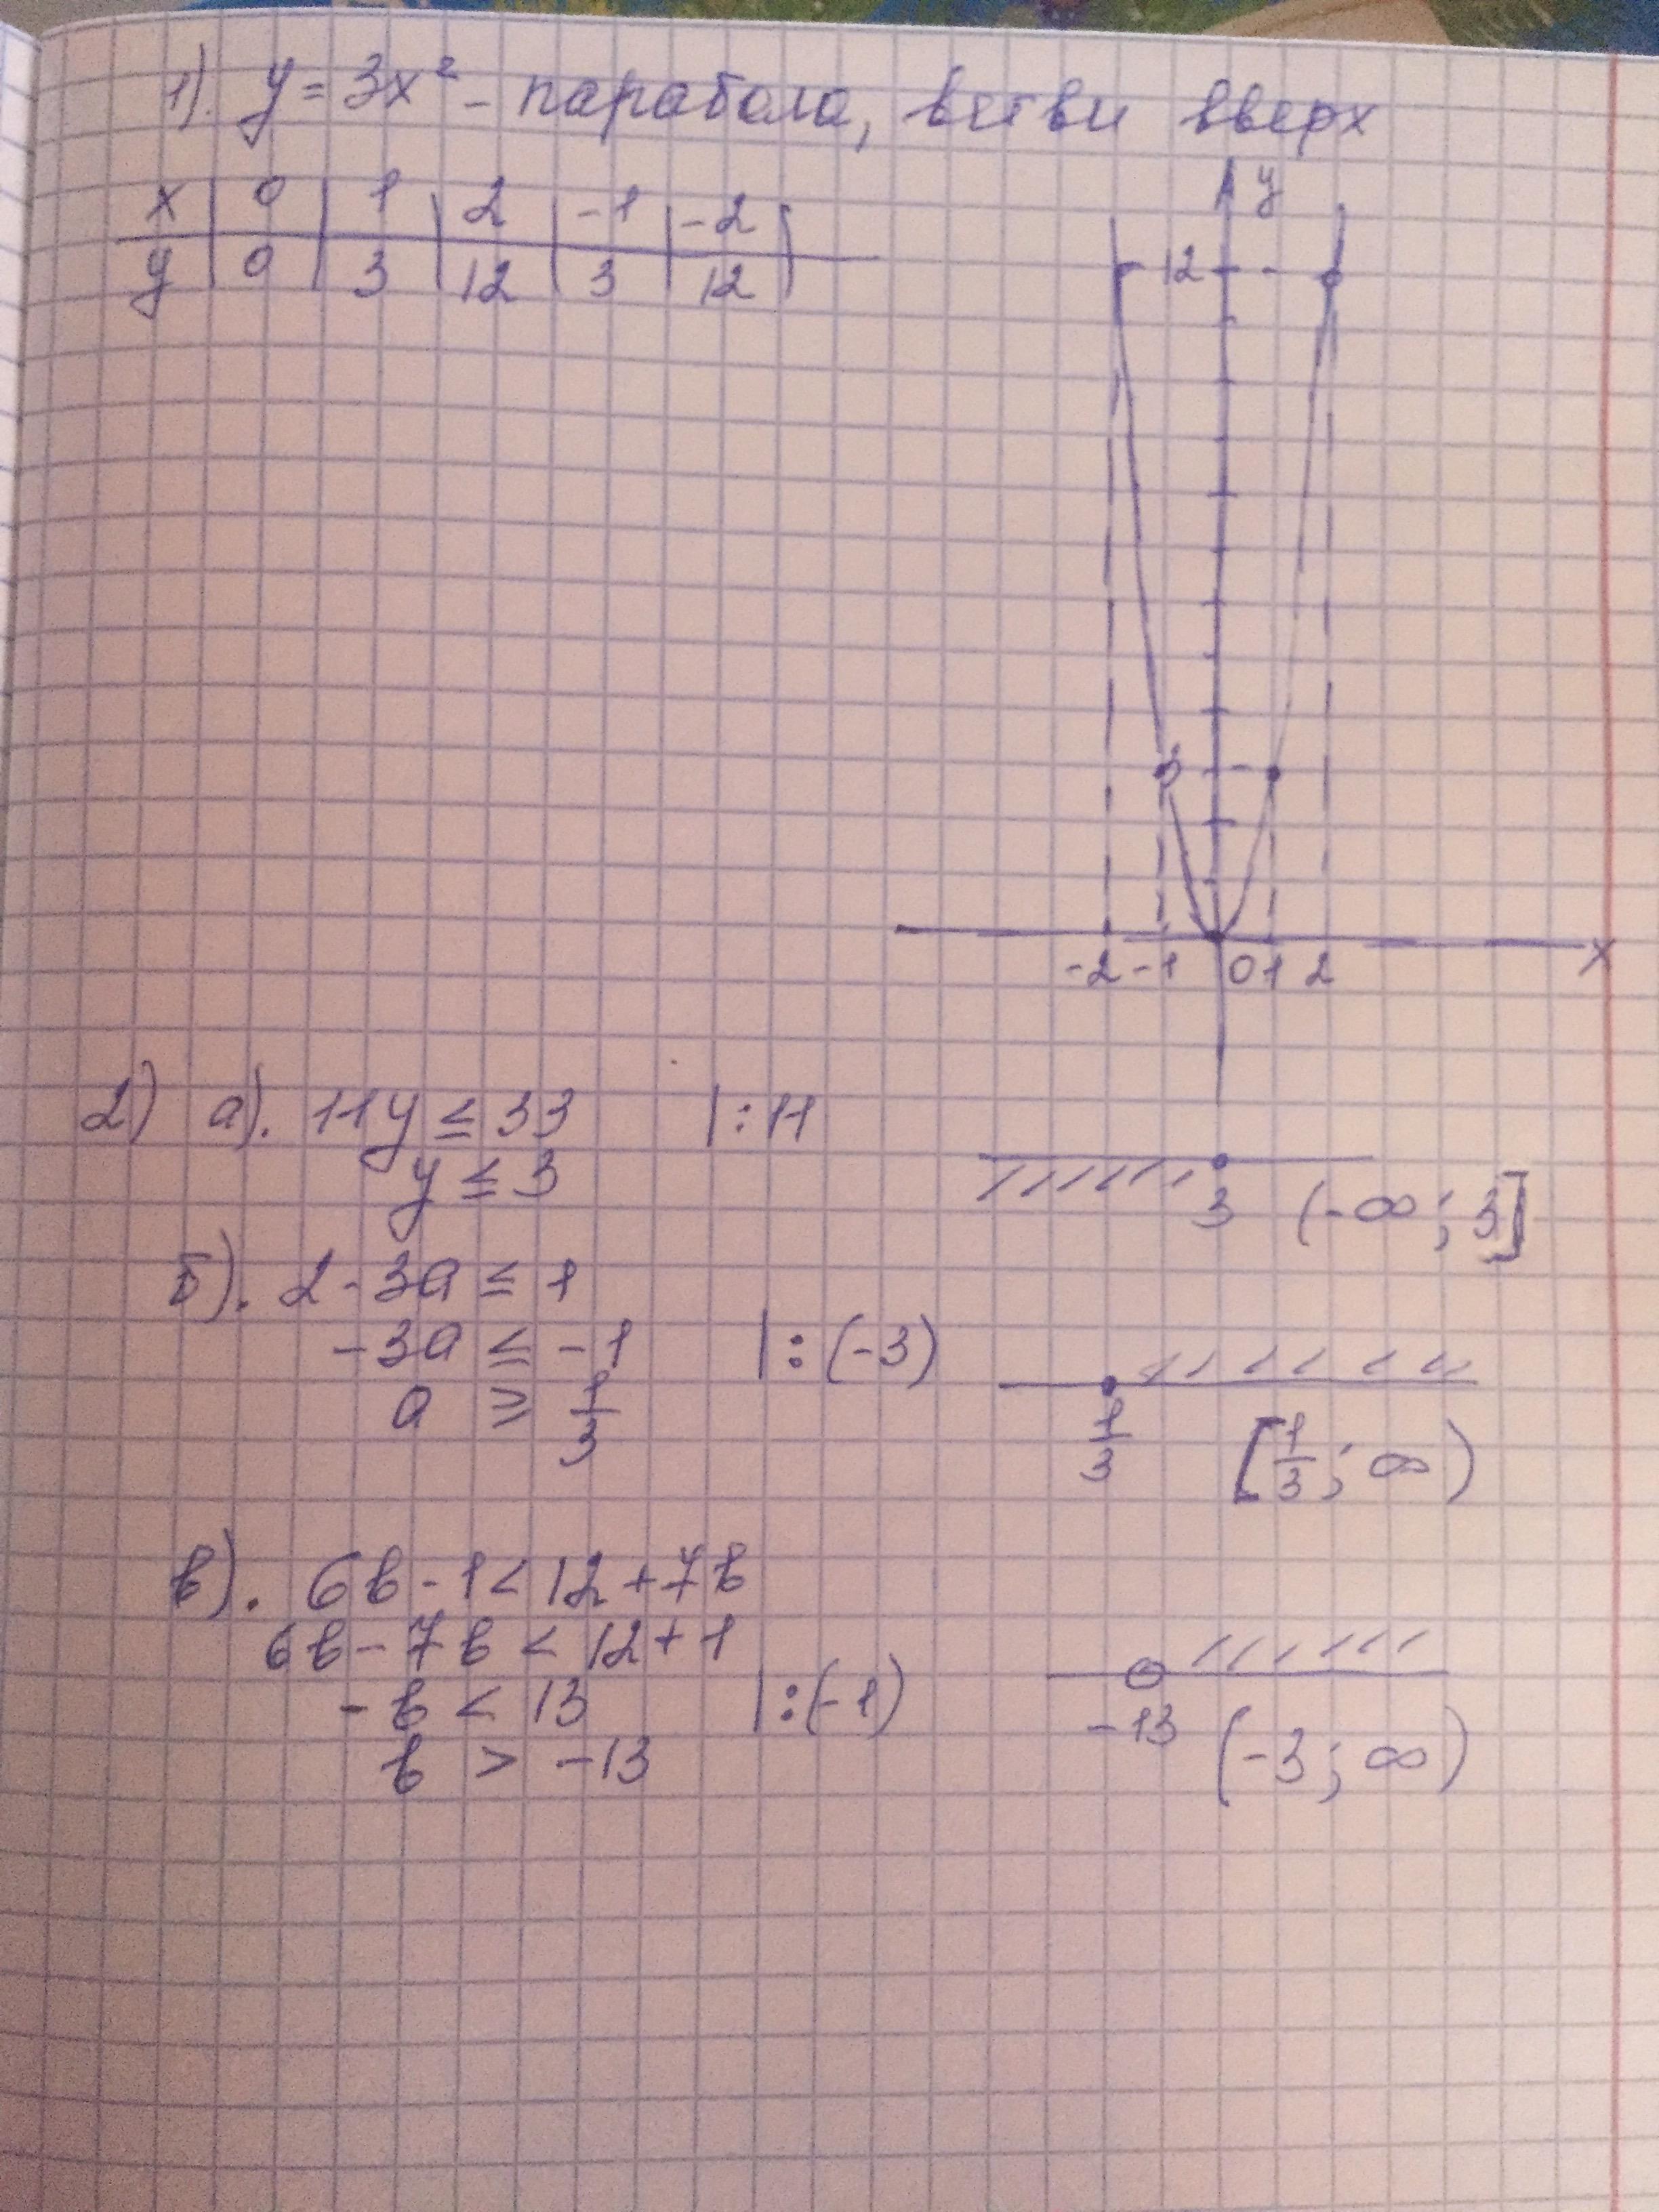 1). y = 3x² - парабола, ветви вверх
x | 0 | 1 | 2 | -1 | -2 |
y | 0 | 3 | 12 | 3 | 12 |
y
12
3
-2 -1 0 1 2 x
2) а). 11y ≤ 33 | : 11
y ≤ 3
3 (-∞; 3]
б). 2 - 3a ≤ 1
-3a ≤ -1 | : (-3)
a ≥ 1/3
1/3 [1/3; ∞)
в). 6в - 1 < 12 + 7в
6в - 7в < 12 + 1
-в < 13 | : (-1)
в > -13
-13 (-3; ∞)